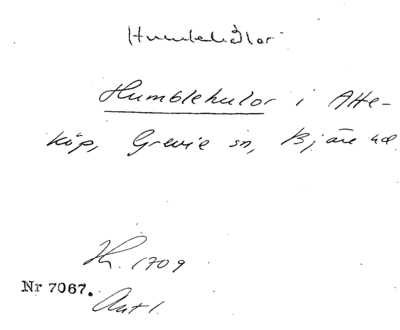 Humlehålor
Humblehulor i Atte-
köp, Grevie sn, Bjäre hd
H. 1709
Nr 7067.
Ant 1.